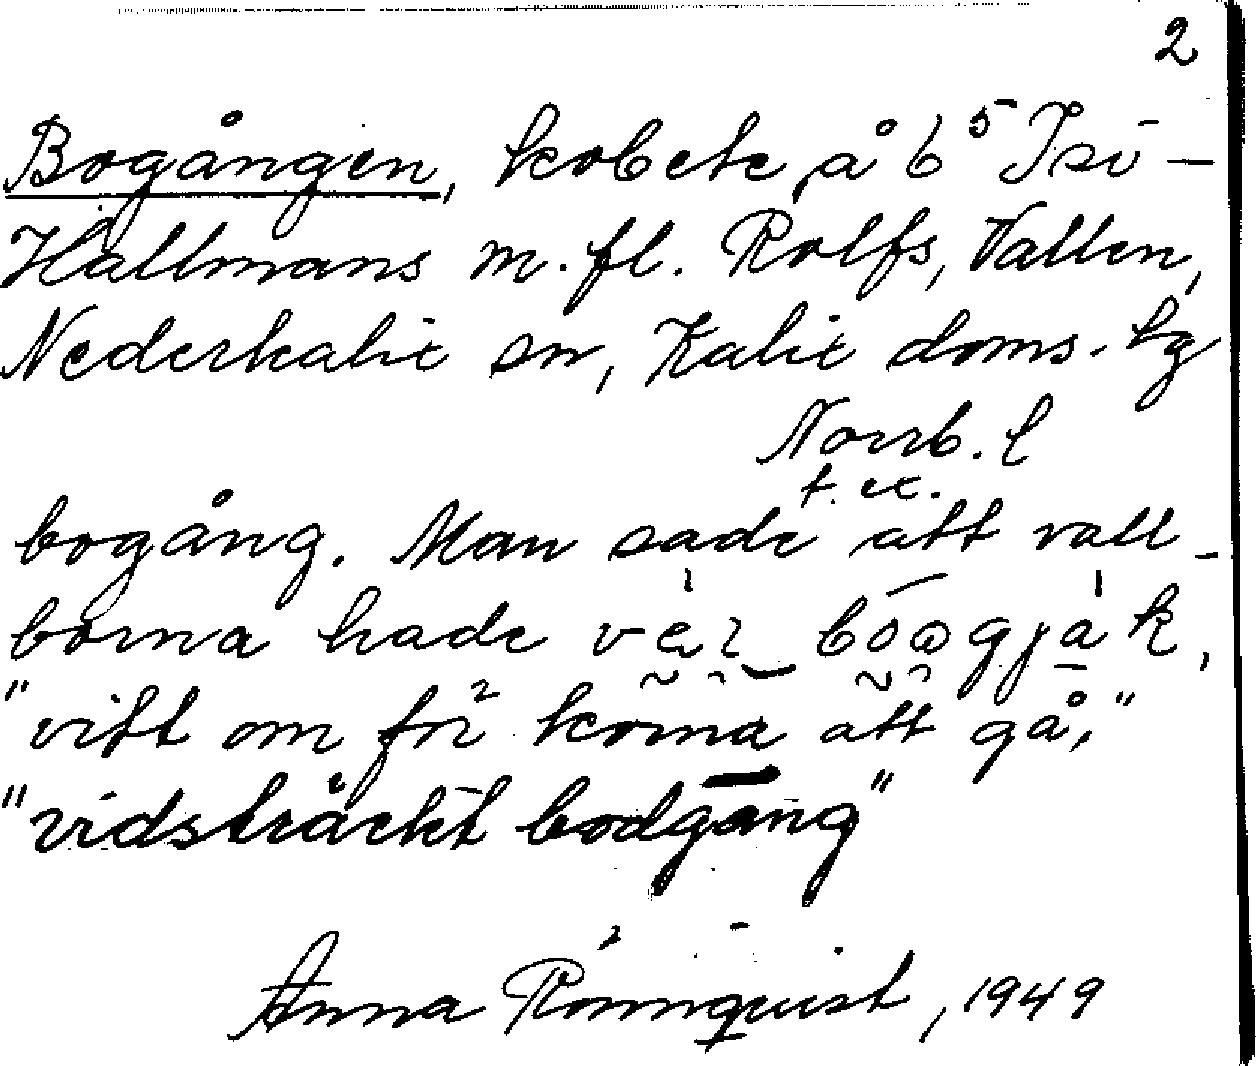 2
Bogången, kobete å b⁵ Isi-
Hällmans m. fl. Rolfs, Vallen,
Nederkalix sn, Kalix doms. lg
Norrb. l
t. ex.
bogång. Man sade att vall-
borna hade
"vitt om för koma att gå,"
"vidsträckt bodgång"
Anna Rönnquist, 1949